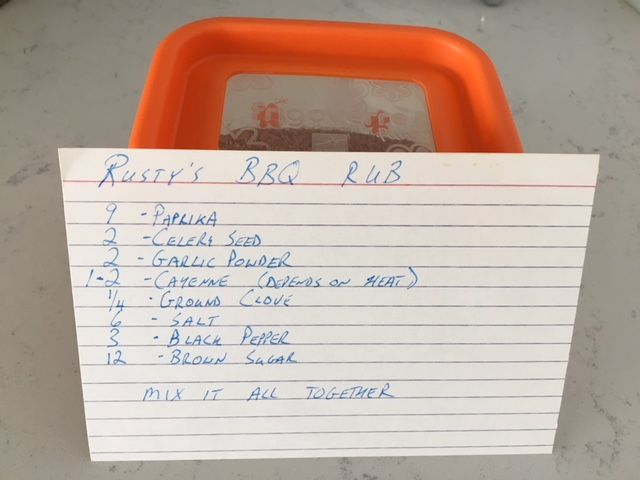 RUSTY'S BBQ RUB
9 - PAPRIKA
2 - CELERY SEED
2 - GARLIC POWDER
1-2 - CAYENNE (DEPENDS ON HEAT)
1/4 - GROUND CLOVE
6 - SALT
3 - BLACK PEPPER
12 - BROWN SUGAR
MIX IT ALL TOGETHER